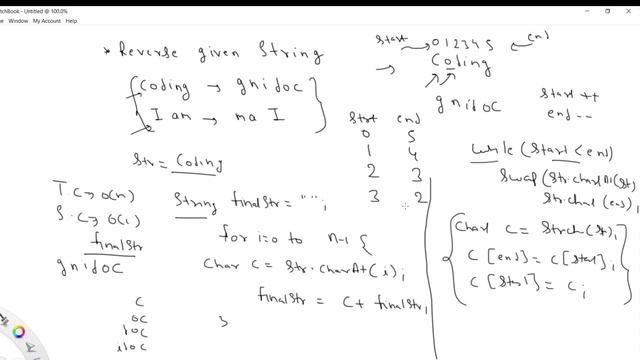 tchBook - Untitled @ 100.0%
Window My Account Help
* Reverse given String
Coding → gnidoc
I am → ma I
Str = Coding
T C → O(n)
S.C → O(1)
finalStr
gnidoc
C
oC
doC
idoC
String finalStr = "";
for i=0 to n-1 {
Char c = Str.charAt(i);
finalStr = C + finalStr;
}
start → 0 1 2 3 4 5 ← end
→ Coding
gnidoC
start ++
end --
Strt end
0 5
1 4
2 3
3 2
while (Start < end)
Swap (Str.charAt(St)
Str.char(en),
Char C = Strch(St),
C [end] = C[Start],
C [Start] = C;